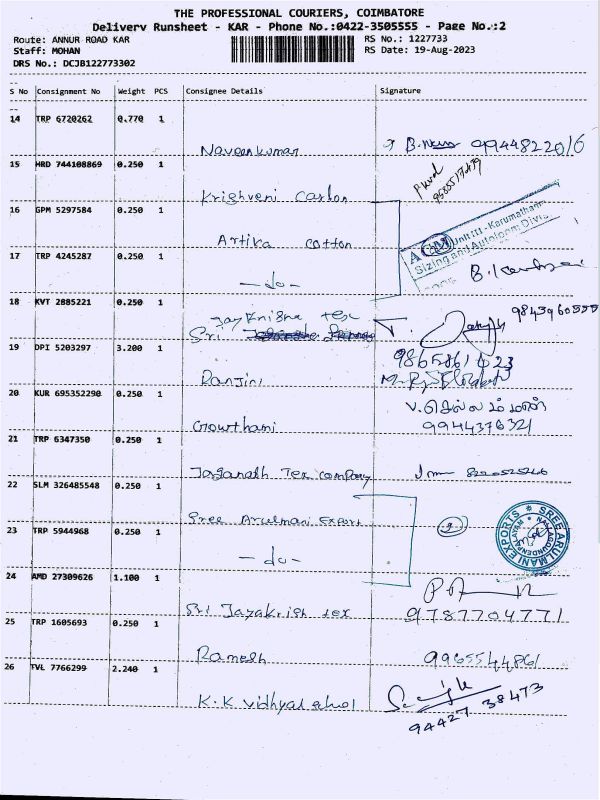 THE PROFESSIONAL COURIERS, COIMBATORE
Delivery Runsheet - KAR - Phone No.:0422-3505555 - Page No.:2
Route: ANNUR ROAD KAR
RS No.: 1227733
Staff: MOHAN
RS Date: 19-Aug-2023
DRS No.: DCJB122773302
S No Consignment No Weight PCS Consignee Details Signature
14 TRP 6720262 0.770 1
Naveenkumar 9944822016
15 HRD 744108869 0.250 1
Krishveni Carton
16 GPM 5297584 0.250 1
Artika cotton
Unit III - Karumatham
Sizing and Autoloom Divis
17 TRP 4245287 0.250 1
-do-
18 KVT 2885221 0.250 1
Jay Krishna tex 9843960555
Sri
19 DPI 5203297 3.200 1
9865861423
Ranjini
20 KUR 695352290 0.250 1
வ.செல்லம்மாள்
Gowthami 9944376321
21 TRP 6347350 0.250 1
Jaganath Tex company
22 SLM 326485548 0.250 1
Sree Arulmani Export
SREE ARULMANI EXPORTS
23 TRP 5944968 0.250 1
-do-
24 AMD 27309626 1.100 1
Sri Jayakrish tex 9787704771
25 TRP 1605693 0.250 1
Ramesh 9965544861
26 TVL 7766299 2.240 1
K.K vidhyalahol
94427 38473